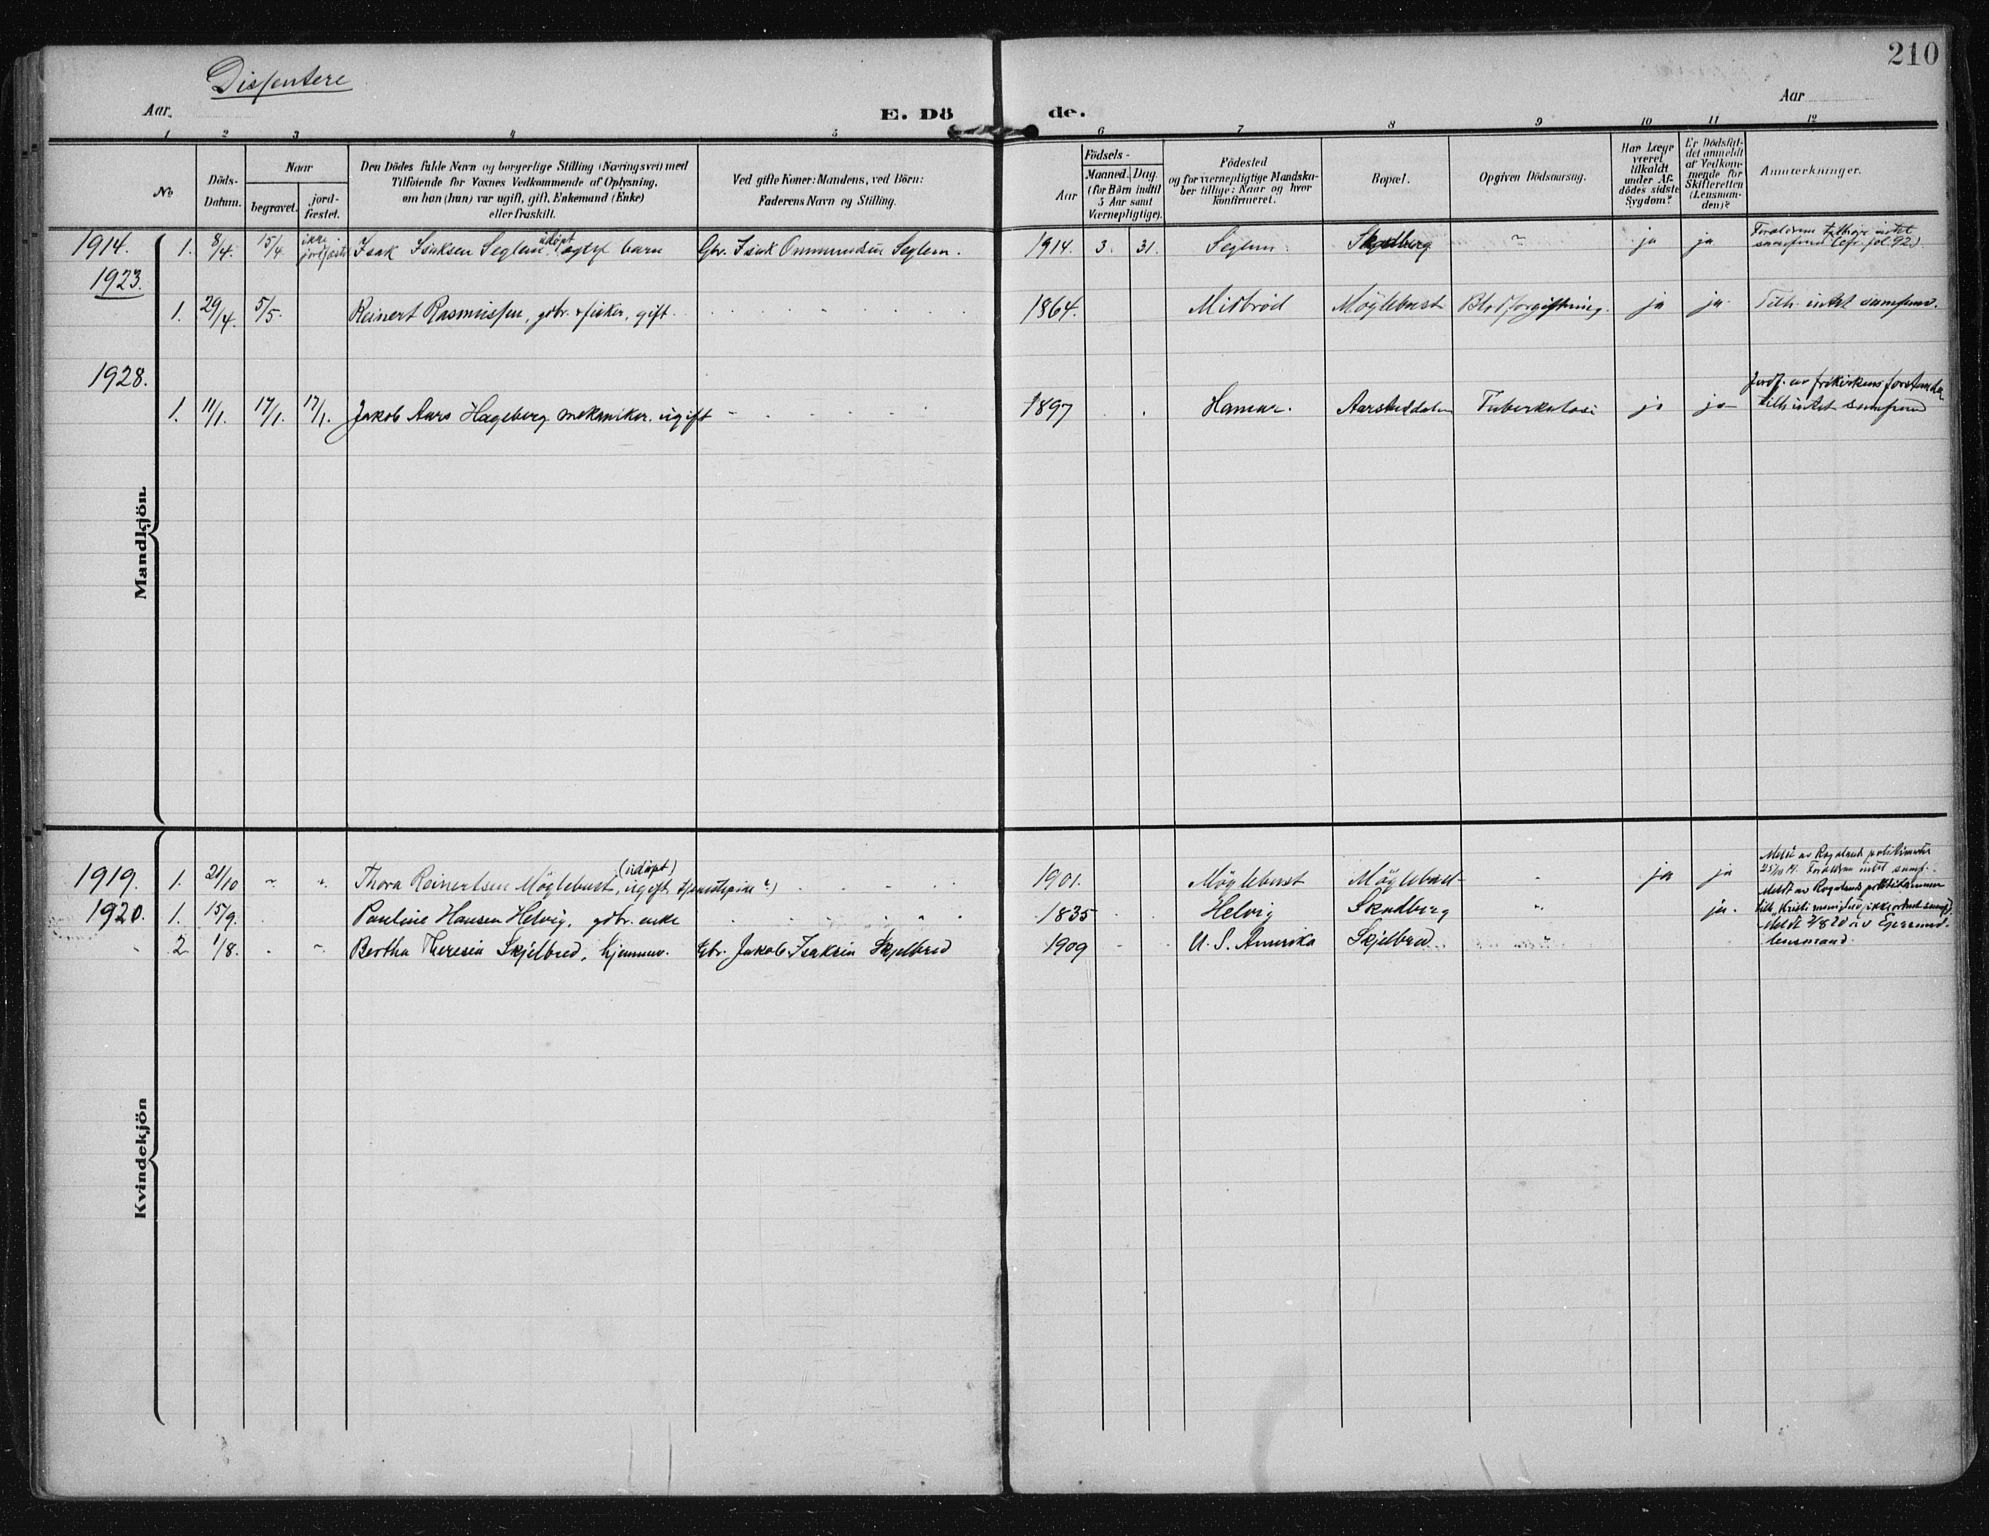 210
Dissentere
Aar.
E. Dö
de.
Aar
1 2 3 4 5 6 7 8 9 10 11 12
No
Döds-
Datum.
Naar
begravet.
jord-
fæstet.
Den Dödes fulde Navn og borgerlige Stilling (Næringsvei) med
Tilföiende for Voxnes Vedkommende af Oplysning,
om han (hun) var ugift, gift, Enkemand (Enke)
eller fraskilt.
Ved gifte Koner: Mandens, ved Börn:
Faderens Navn og Stilling.
Födsels-
Aar
Maaned. Dag.
(for Börn indtil
5 Aar samt
Værnepligtige).
Födested
og for værnepligtige Mandska-
ber tillige: Naar og hvor
konfirmeret.
Bopæl.
Opgiven Dödsaarsag.
Har Læge
været
tilkaldt
under Af-
dödes sidste
Sygdom?
Er Dödsfal-
det anmeldt
af Vedkom-
mende for
Skifteretten
(Lensman-
den)?
Anmærkninger.
Mandkjön.
1914. 1. 8/4. 15/4 ikke jordfæstet Isak Isaksen Seglem udöpt barn Gbr. Isak Ommundsen Seglem. 1914. 3. 31. Seglem Skadberg " ja ja Forældrene tilhører intet
samfund (cfr. fol 92.)
1923.
1. 29/4. 5/5. Reinert Rasmussen, gdbr. & fisker, gift. 1864. Midbrød Möglebust Blodforgiftning. ja ja Tilh. intet samfund.
1928.
1. 11/1. 17/1. 17/1. Jakob Aars Hageberg mekaniker. ugift 1897 Hamar. Aarstaddalen Tuberkulose ja ja Jordf. av frikirkens forstander
tilh. intet samfund
Kvindekjön
1919. 1. 21/10 " " Thora Reinertsen Möglebust, (udöpt) ugift, 1901. Möglebust Möglebust " ja ja Meldt av Rogaland politimester
Forældrene intet samf.
1920. 1. 15/9. Pauline Hansen Helvig, gdbr. enke 1835 Helvig Skadberg " ja. Meldt av Rogalands politikammer
tilh. "Kristi menighed",
2 1/8. Bertha Theresia Skjelbred, hjemmev. Gbr. Jakob Isaksen Skjelbred 1909 U. S. Amerika Skjelbred Meldt 2/8 20 av Egersund
lensmand.